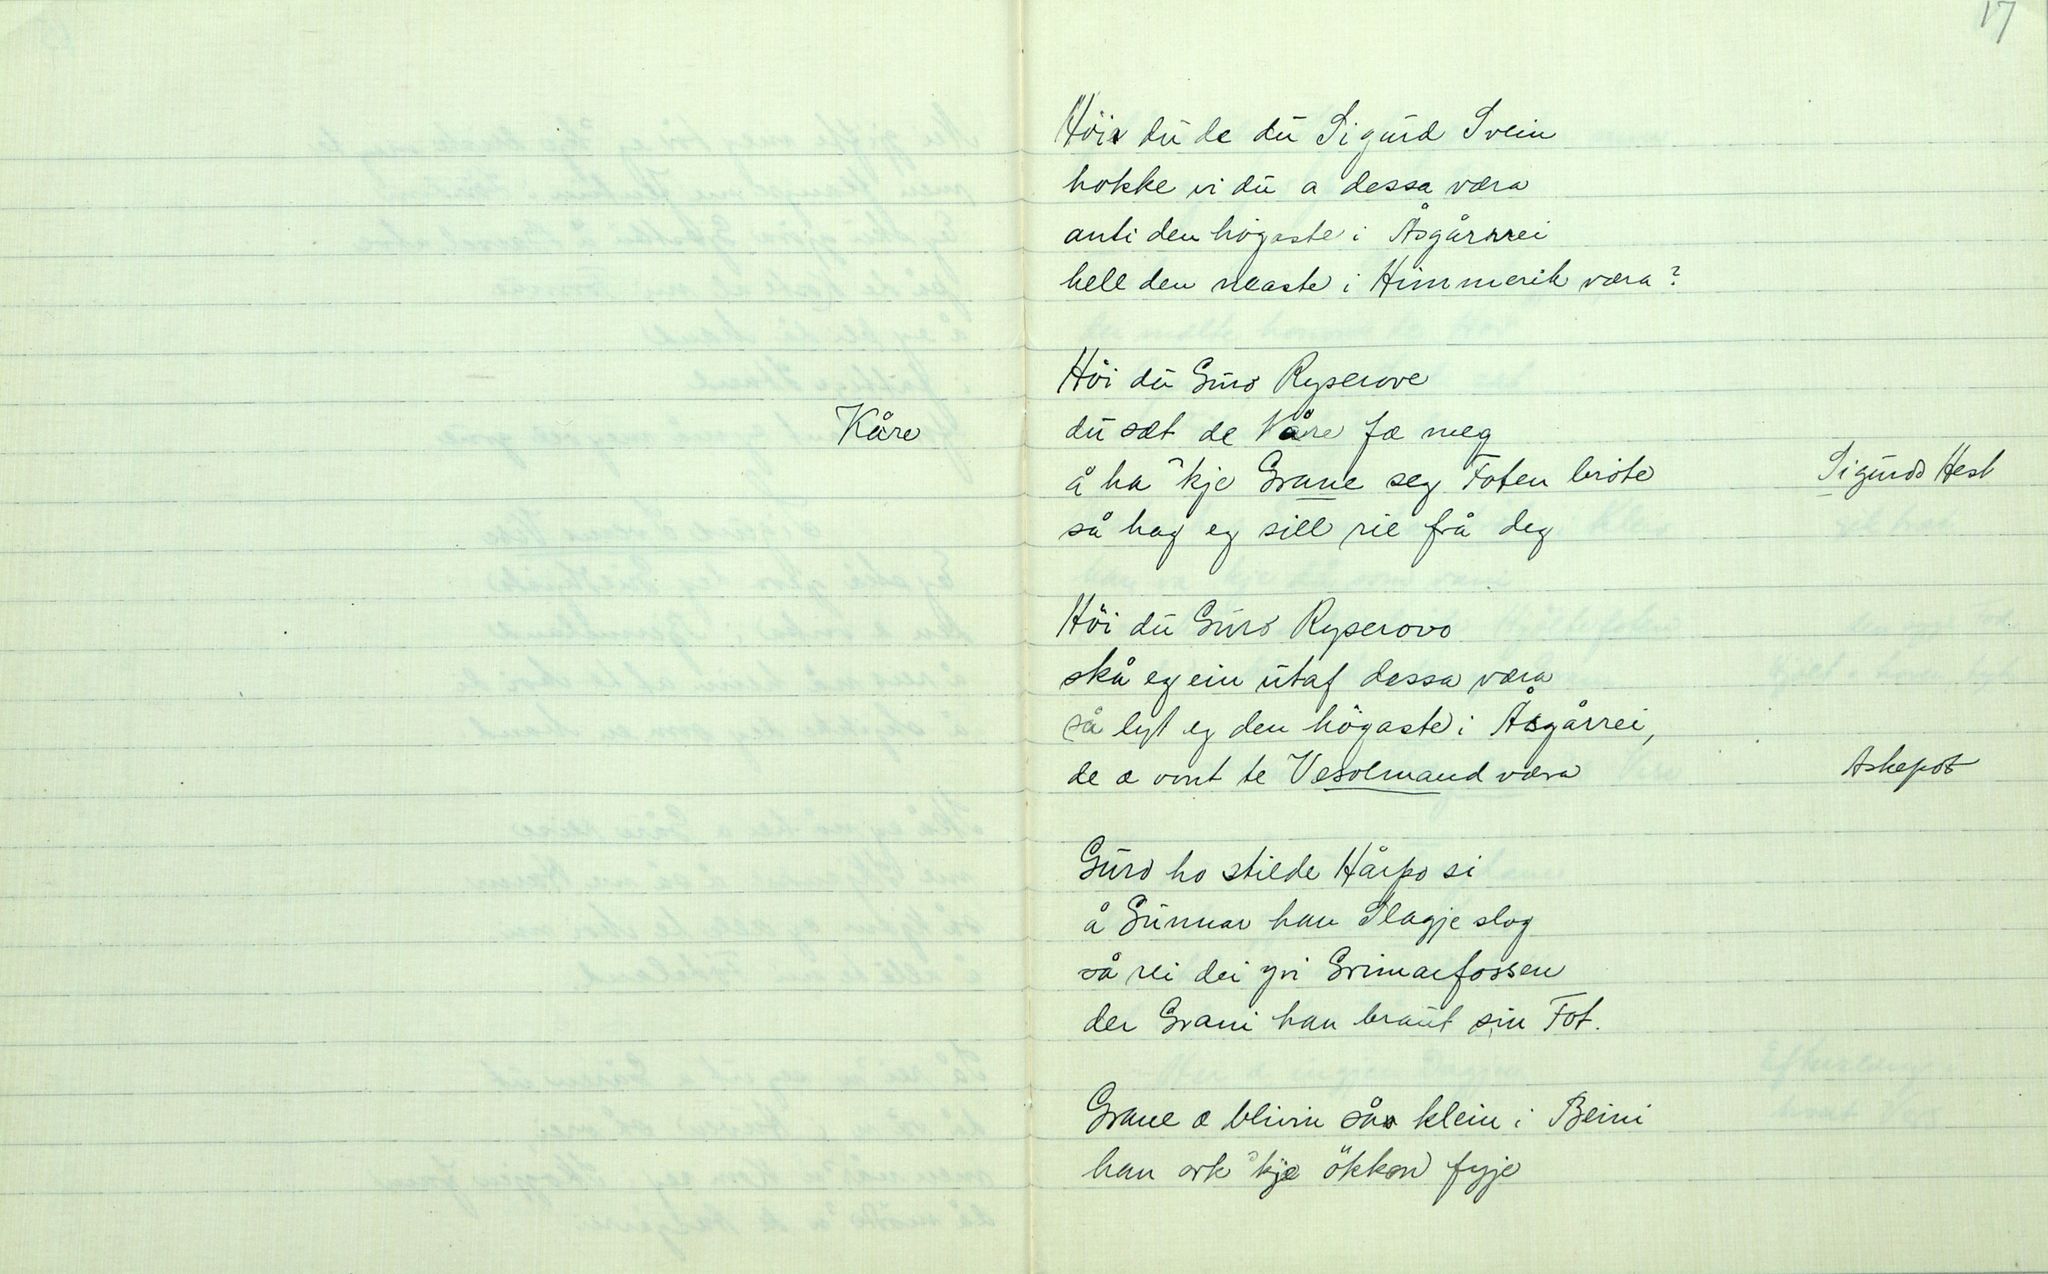 17
Höir du de du Sigurd Svein
hokke vi du a dessa væra
anti den högaste i Åsgårrei
hell den neaste i Himmerik væra?
Höi du Guro Ryserove
du sæt de Våre fæ meg
Kåre
å ha 'kje Grane seg Foten bröte
Sigurds Hest
så hag eg sill rie frå deg
Höi du Guro Ryserovo
skå eg ein utaf dessa væra
så lyt eg den högaste i Åsgårrei,
de æ vont te Vesolmand væra
Askepot
Guro ho stilde Hårpo si
å Gunnar han Slagje slog
så rei dei yvi Grimarfossen
der Grani han braut sin Fot.
Grane æ blivin så klein i Beini
han ork 'kje ökkon fyje